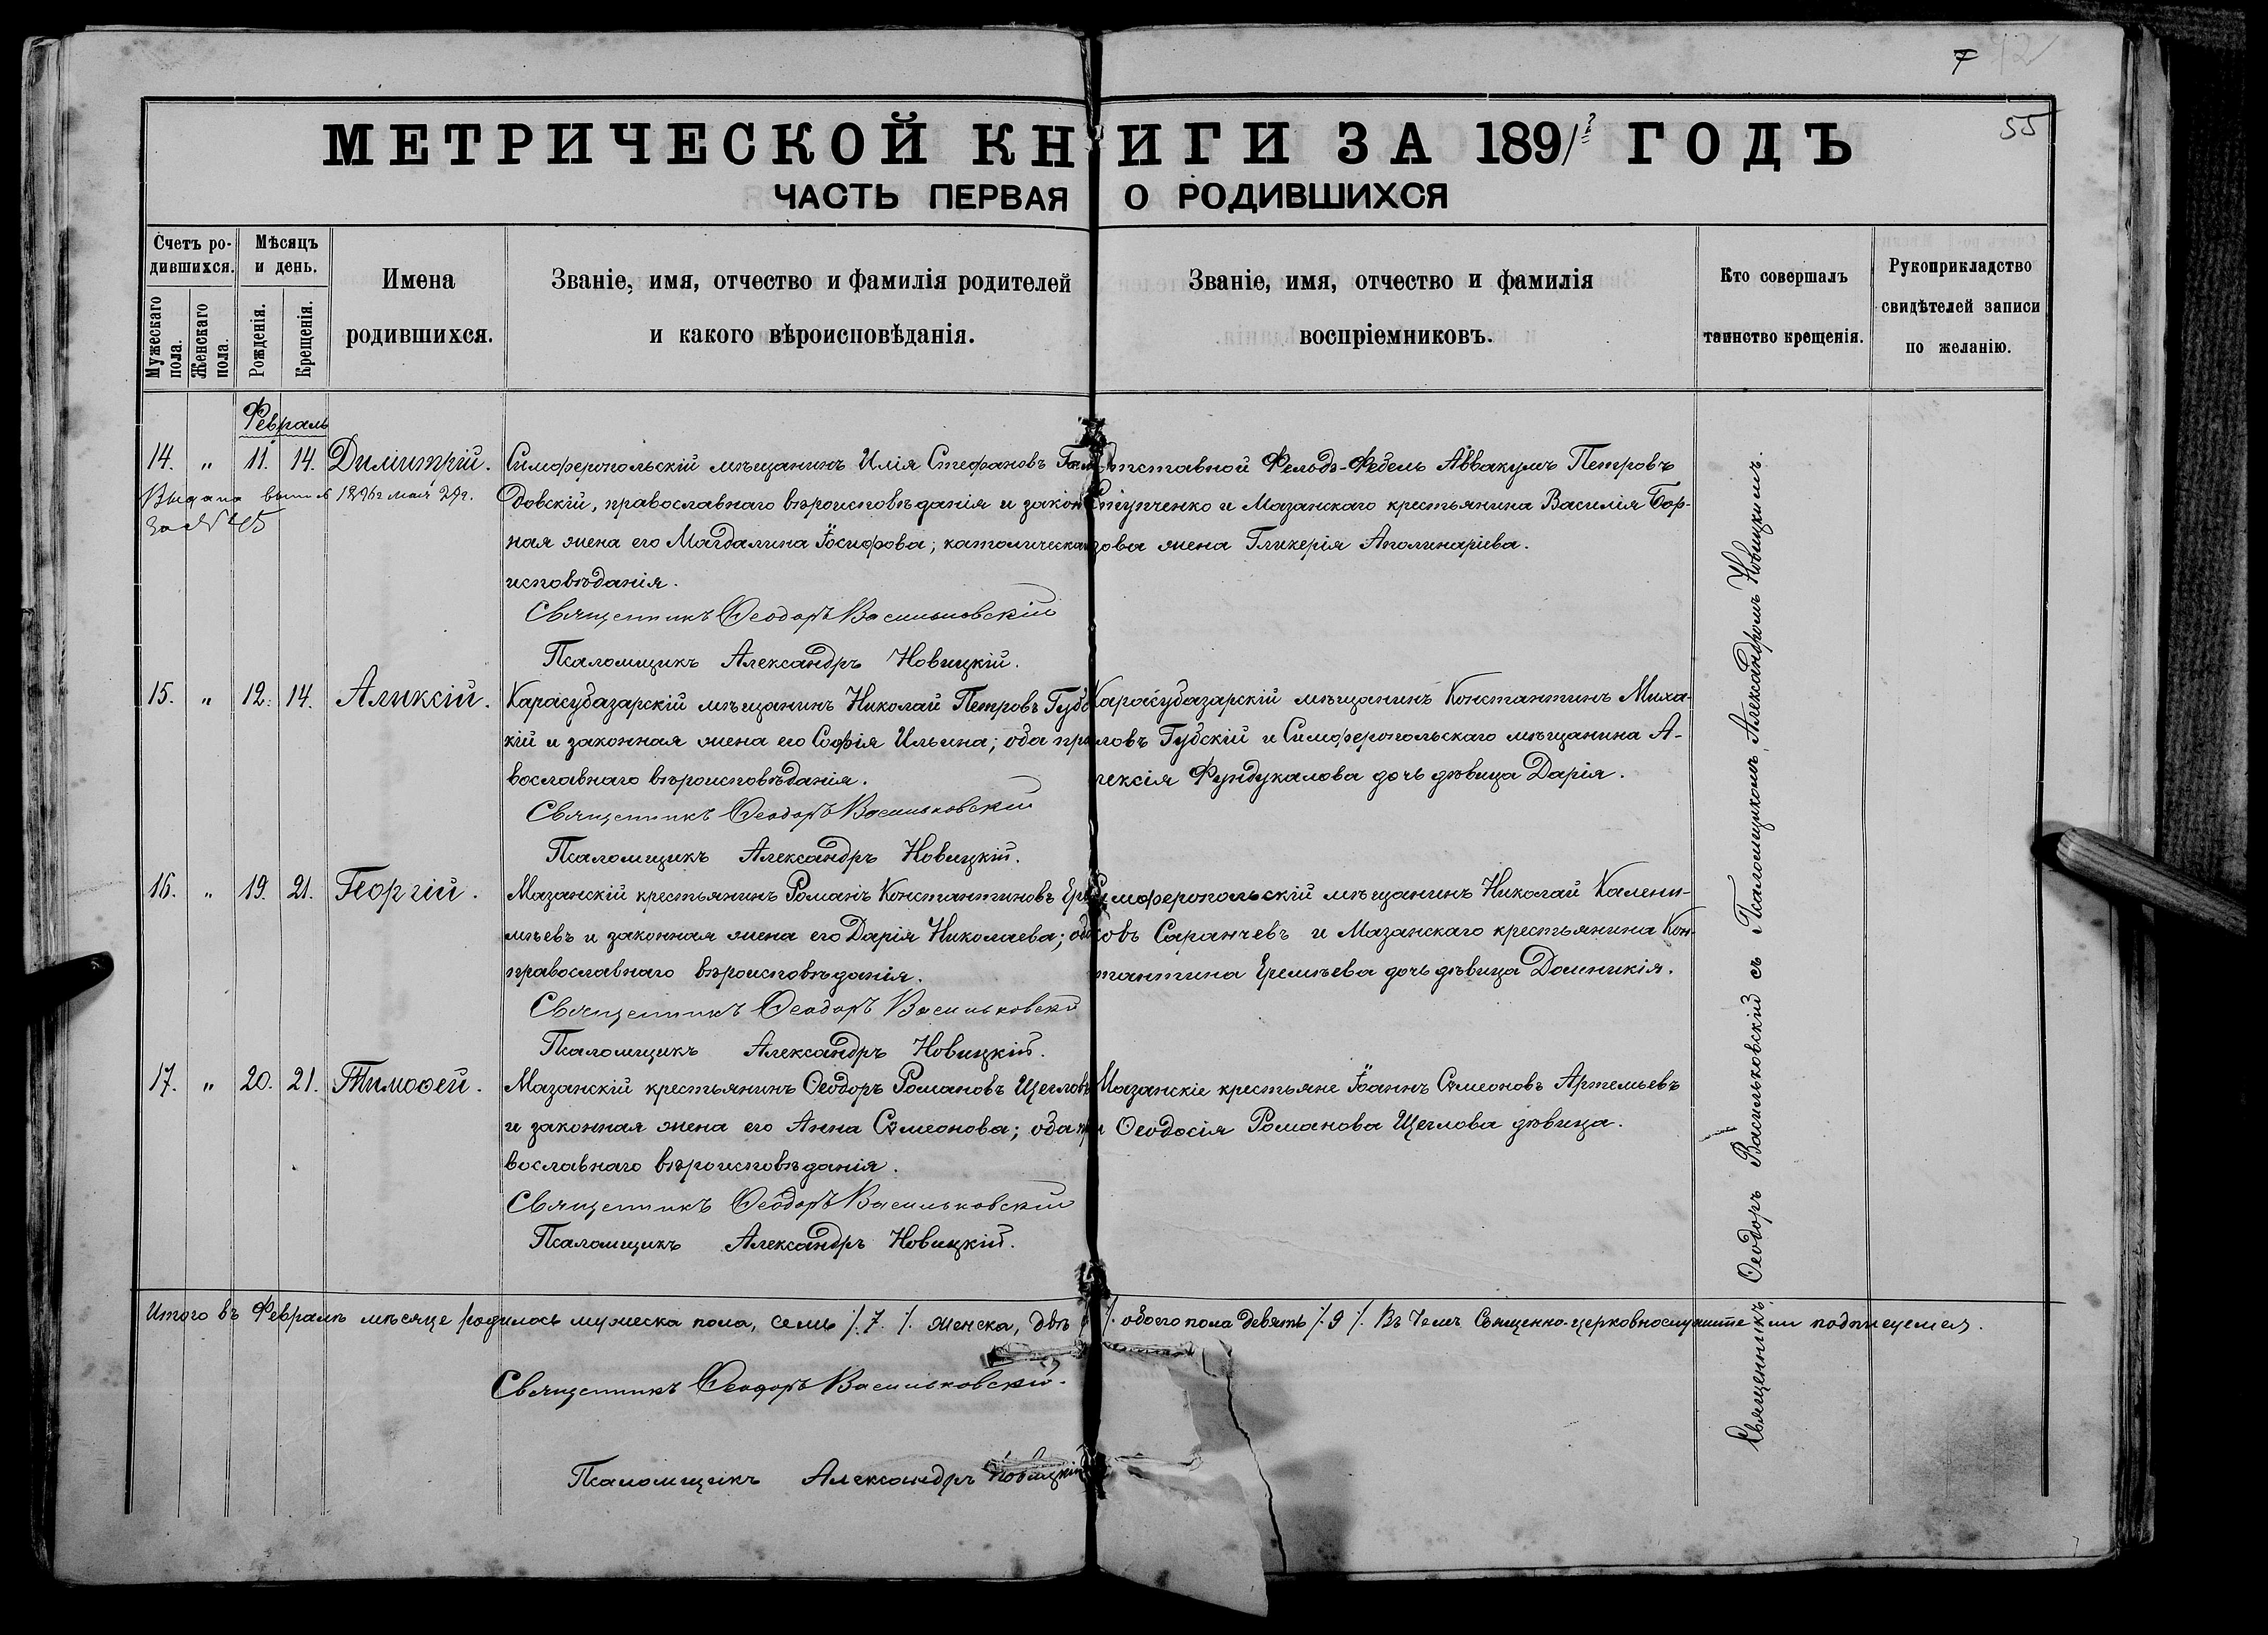 7 42
55
МЕТРИЧЕСКОЙ КНИГИ ЗА 1891 ГОДЪ
ЧАСТЬ ПЕРВАЯ О РОДИВШИХСЯ
Счетъ родившихся.
Мужескаго пола.
Женскаго пола.
Мѣсяцъ и день.
Рожденія.
Крещенія.
Имена
родившихся.
Званіе, имя, отчество и фамилія родителей
и какого вѣроисповѣданія.
Званіе, имя, отчество и фамилія
воспріемниковъ.
Кто совершалъ
таинство крещенія.
Рукоприкладство
свидѣтелей записи
по желанію.
Февраль
14. " 11. 14. Димитрій.
Выдана выпись 1896 г мая 29 г.
За № 45
Симферопольскій мѣщанинъ Илія Стефановъ
довскій, православнаго вѣроисповѣданія и закон-
ная жена его Магдалина Іосифова; католическа
исповѣданія.
Священникъ Ѳеодоръ Васильковскій
Псаломщикъ Александръ Новицкій.
Отставной Фельдъ-Федель Аввакумъ Петровъ
Ступченко и Мазанскаго крестьянина Василія Бор-
зова жена Гликерія Аполинаріева.
15. " 12. 14. Алексій.
Карасубазарскій мѣщанинъ Николай Петровъ Губс
кій и законная жена его Софія Ильина; оба пра
вославнаго вѣроисповѣданія.
Священникъ Ѳеодоръ Васильковскій
Псаломщикъ Александръ Новицкій.
Карасубазарскій мѣщанинъ Константинъ Миха-
ловъ Губскій и Симферопольскаго мѣщанина А-
лексія Фундукалова дочь дѣвица Дарія.
16. " 19. 21. Георгій.
Мазанскій крестьянинъ Романъ Константиновъ Ере
мѣевъ и законная жена его Дарія Николаева; оба
православнаго вѣроисповѣданія.
Священникъ Ѳеодоръ Васильковскій
Псаломщикъ Александръ Новицкій.
Симферопольскій мѣщанинъ Николай Калени-
ковъ Саранчевъ и Мазанскаго крестьянина Кон-
стантина Еремѣева дочь дѣвица Домникія.
17. " 20. 21. Тимоѳей.
Мазанскій крестьянинъ Ѳеодоръ Романовъ Щегловъ
и законная жена его Анна Сѵмеонова; оба пра
вославнаго вѣроисповѣданія.
Священникъ Ѳеодоръ Васильковскій
Псаломщикъ Александръ Новицкій.
Мазанскіе крестьяне Іоаннъ Сѵмеоновъ Артемьевъ
и Ѳеодосія Романова Щеглова дѣвица.
Священникъ Ѳеодоръ Васильковскій съ Псаломщикомъ Александромъ Новицкимъ.
Итого въ Февралѣ мѣсяце родилось мужеска пола, семь ⁒ 7 ⁒ женска, двѣ ⁒ обоего пола девять ⁒ 9 ⁒ Въ чемъ Священно-церковнослужители подписуемся.
Священникъ Ѳеодоръ Васильковскій.
Псаломщикъ Александръ Новицкій